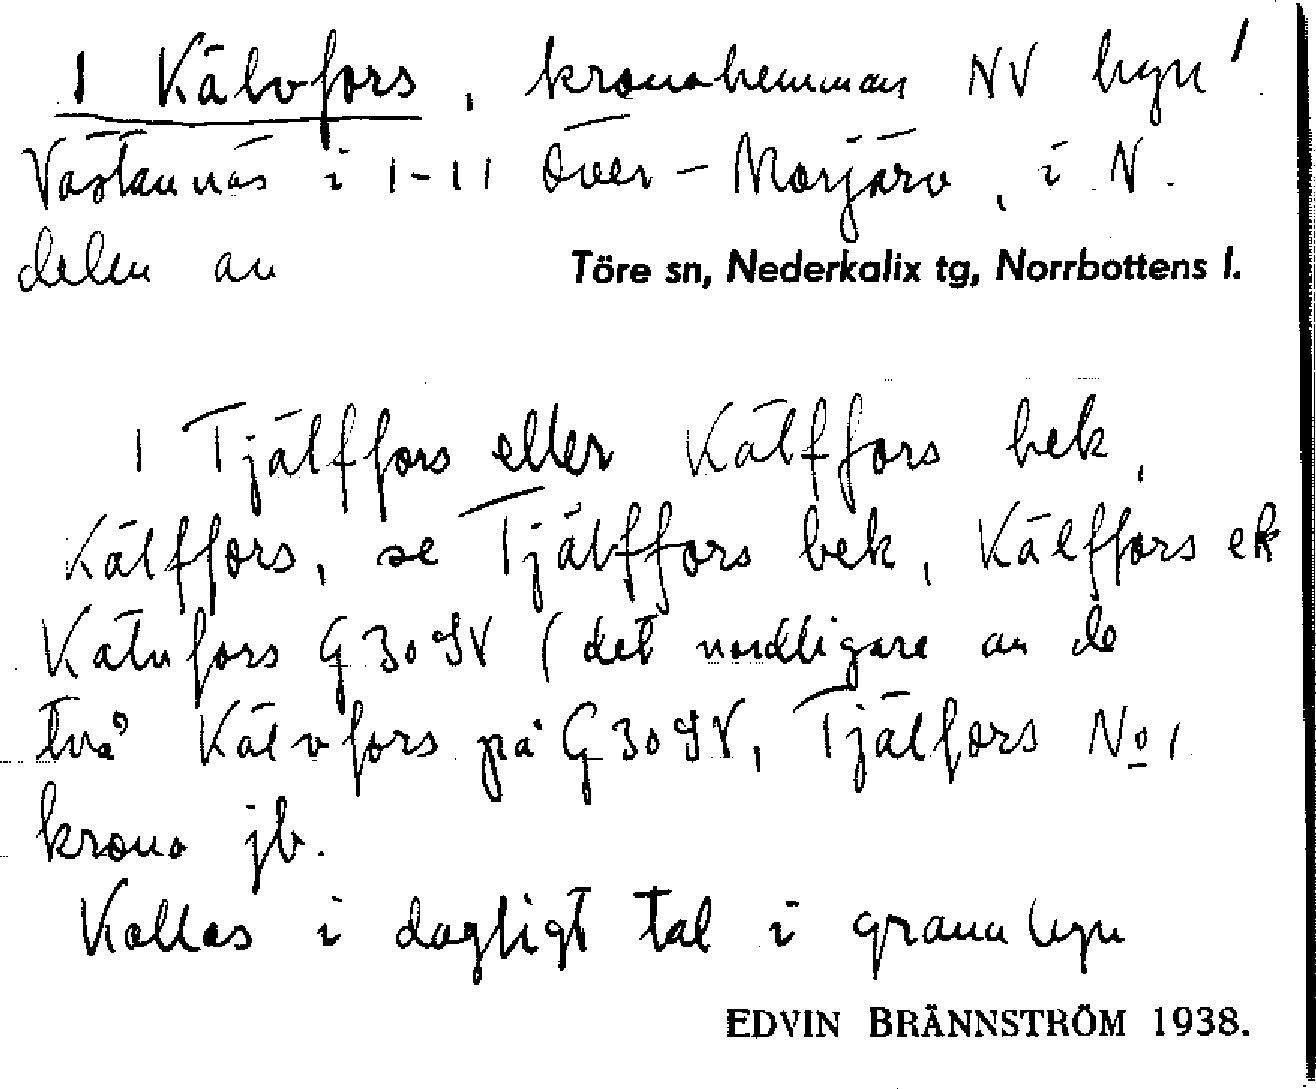 1 Kälvfors, kronohemman NV byn
Västannäs i 1-11 Över-Morjärv, i N.
delen av
Töre sn, Nederkalix tg, Norrbottens l.
1 Tjälffors eller Kälffors bek,
Kälffors, se Tjälffors bek, Kälffors ek
Kälvfors G 30 SV (det nordligare av de
två Kälvfors på G 30 SV, Tjälfors No 1
krono jb.
Kallas i dagligt tal i grannbyn
EDVIN BRÄNNSTRÖM 1938.